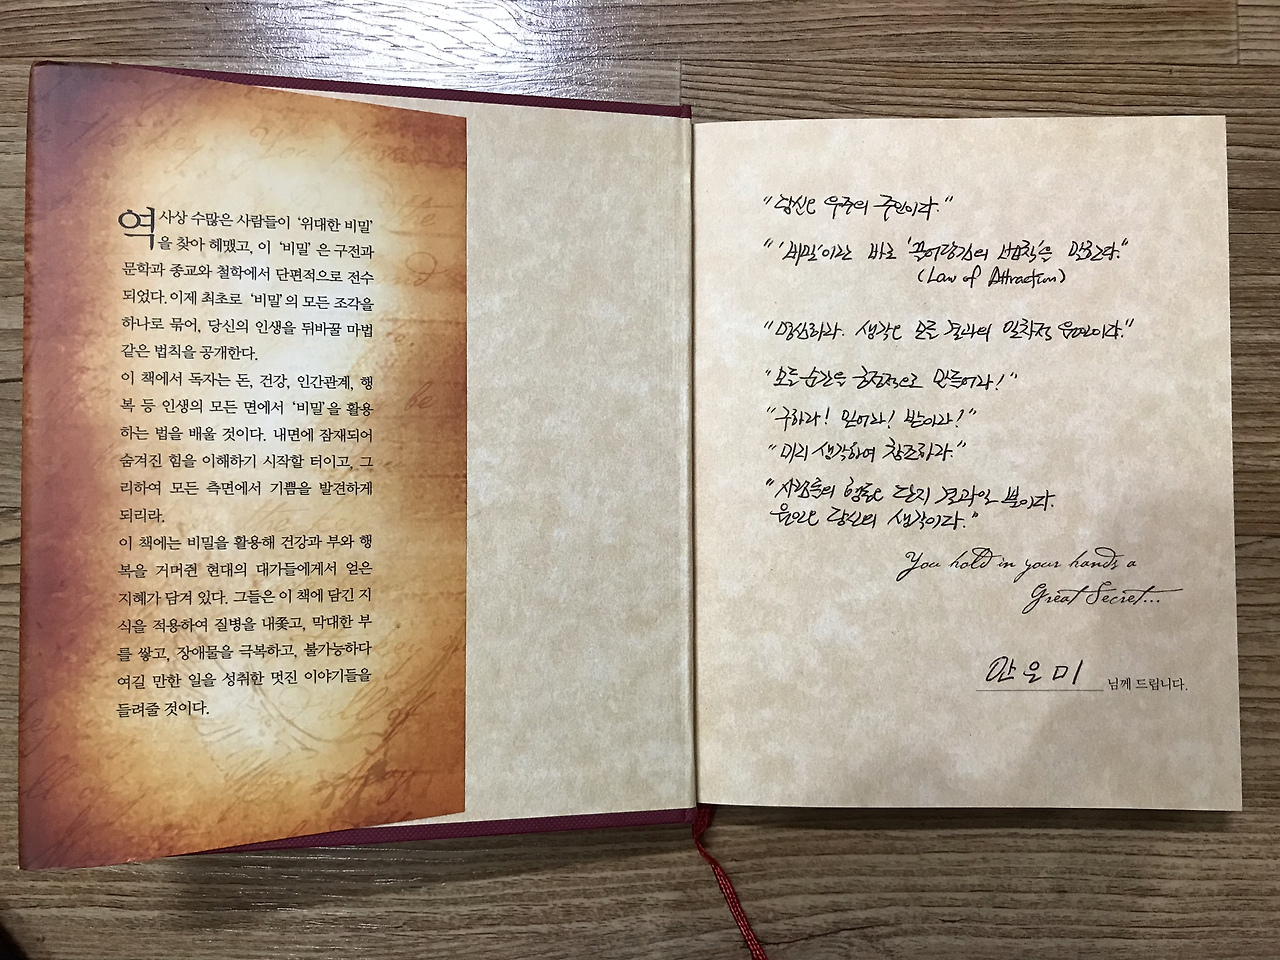 역사상 수많은 사람들이 ‘위대한 비밀’
을 찾아 헤맸고, 이 ‘비밀’ 은 구전과
문학과 종교와 철학에서 단편적으로 전수
되었다. 이제 최초로 ‘비밀’의 모든 조각을
하나로 묶어, 당신의 인생을 뒤바꿀 마법
같은 법칙을 공개한다.
이 책에서 독자는 돈, 건강, 인간관계, 행
복 등 인생의 모든 면에서 ‘비밀’을 활용
하는 법을 배울 것이다. 내면에 잠재되어
숨겨진 힘을 이해하기 시작할 터이고, 그
리하여 모든 측면에서 기쁨을 발견하게
되리라.
이 책에는 비밀을 활용해 건강과 부와 행
복을 거머쥔 현대의 대가들에게서 얻은
지혜가 담겨 있다. 그들은 이 책에 담긴 지
식을 적용하여 질병을 내쫓고, 막대한 부
를 쌓고, 장애물을 극복하고, 불가능하다
여길 만한 일을 성취한 멋진 이야기들을
들려줄 것이다.
"당신은 우주의 주인이다."
"'비밀'이란 바로 '끌어당김의 법칙'을 말한다."
(Law of Attraction)
"명심하라. 생각은 모든 결과의 일차적 원인이다."
"모든 순간을 긍정적으로 만들어라!"
"구하라! 믿어라! 받아라!"
"미리 생각하여 창조하라."
"사람들의 행동은 단지 결과일 뿐이다.
원인은 당신의 생각이다."
You hold in your hands a
Great Secret...
안은미 님께 드립니다.